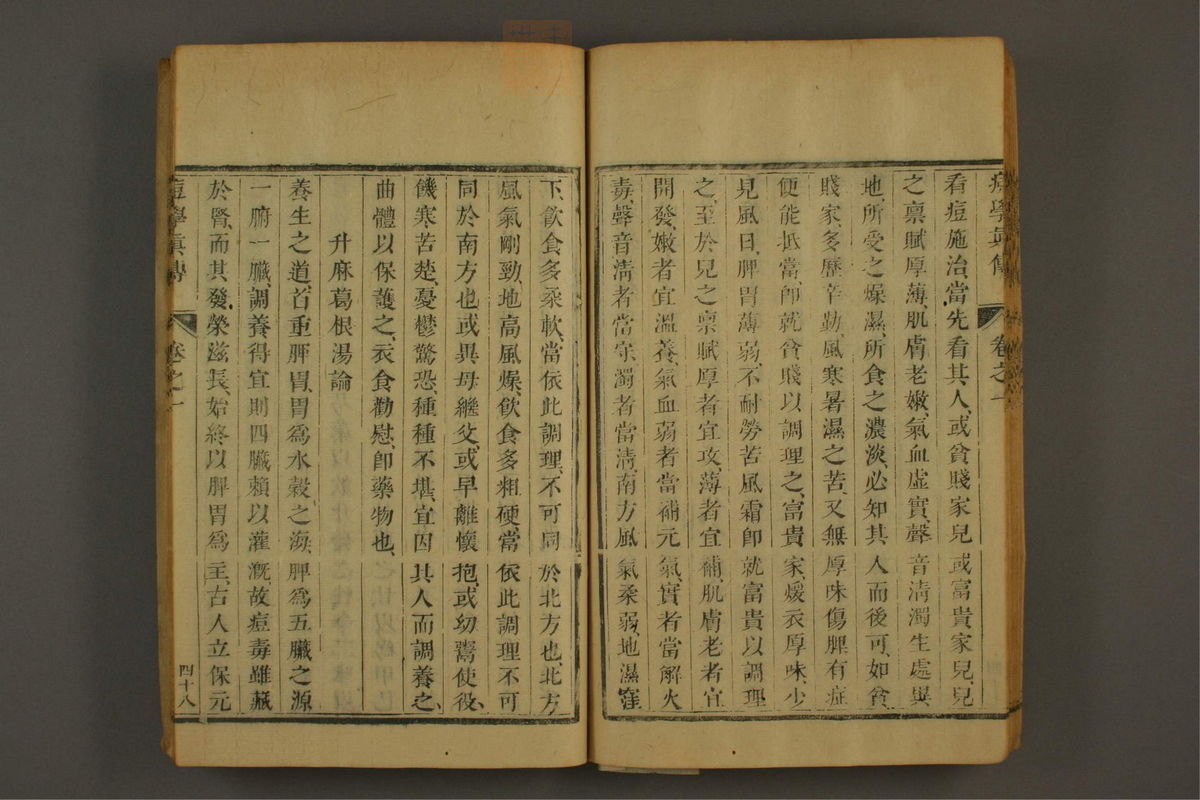 看痘施治、當先看其人、或貧賤家兒、或富貴家兒、兒
之稟賦厚薄、肌膚老嫩、氣血虛實、聲音淸濁、生處異
地、所受之燥濕、所食之濃淡、必知其人而後可、如貧
賤家、多歷辛勤、風寒暑濕之苦、又無厚味傷脾、有症
便能抵當、卽就貧賤以調理之、富貴家、煖衣厚味、少
見風日、脾胃薄弱、不耐勞苦風霜、卽就富貴以調理
之、至於兒之稟賦厚者宜攻、薄者宜補、肌膚老者宜
開發、嫩者宜溫養、氣血弱者當補元氣、實者當解火
毒、聲音淸者當守、濁者當淸、南方風氣柔弱、地濕窪
下、飮食多柔軟、當依此調理、不可同於北方也、北方
風氣剛勁、地高風燥、飮食多粗硬、當依此調理、不可
同於南方也、或異母繼父、或早離懷抱、或幼鬻使役、
饑寒苦楚、憂鬱驚恐、種種不堪、宜因其人而調養之、
曲體以保護之、衣食勸慰、卽藥物也、
升麻葛根湯論
養生之道、首重脾胃、胃爲水穀之海、脾爲五臟之源
一腑一臟、調養得宜、則四臟賴以灌漑、故痘毒雖藏
於腎、而其發榮滋長、始終以脾胃爲主、古人立保元
痘學眞傳 卷之一 四十八